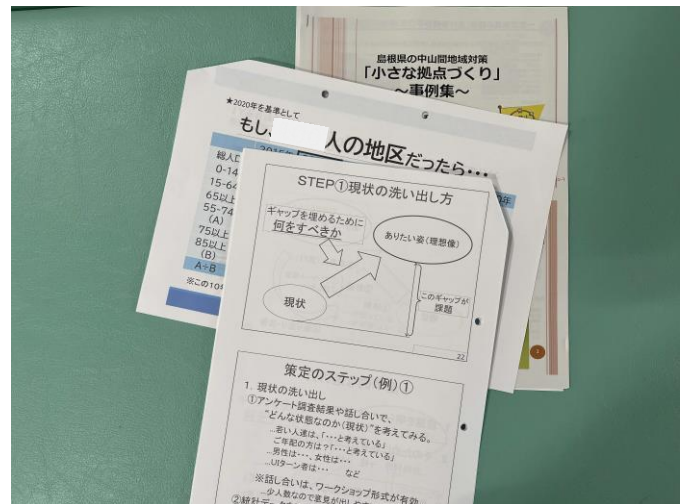 島根県の中山間地域対策
「小さな拠点づくり」
～事例集～
★2020年を基準として
もし、
人の地区だったら・・・
0-14
15-64
65以上
55-74
(A)
75以上
85以上
(B)
A÷B
※この10
STEP①現状の洗い出し方
ギャップを埋めるために
何をすべきか
ありたい姿(理想像)
現状
このギャップが
課題
22
策定のステップ(例)①
1. 現状の洗い出し
①アンケート調査結果や話し合いで、
"どんな状態なのか(現状)"を考えてみる。
…若い人達は、「・・・と考えている」
ご年配の方は?「・・・と考えている」
…男性は・・・、女性は・・・
…UIターン者は・・・ など
※話し合いは、ワークショップ形式が有効